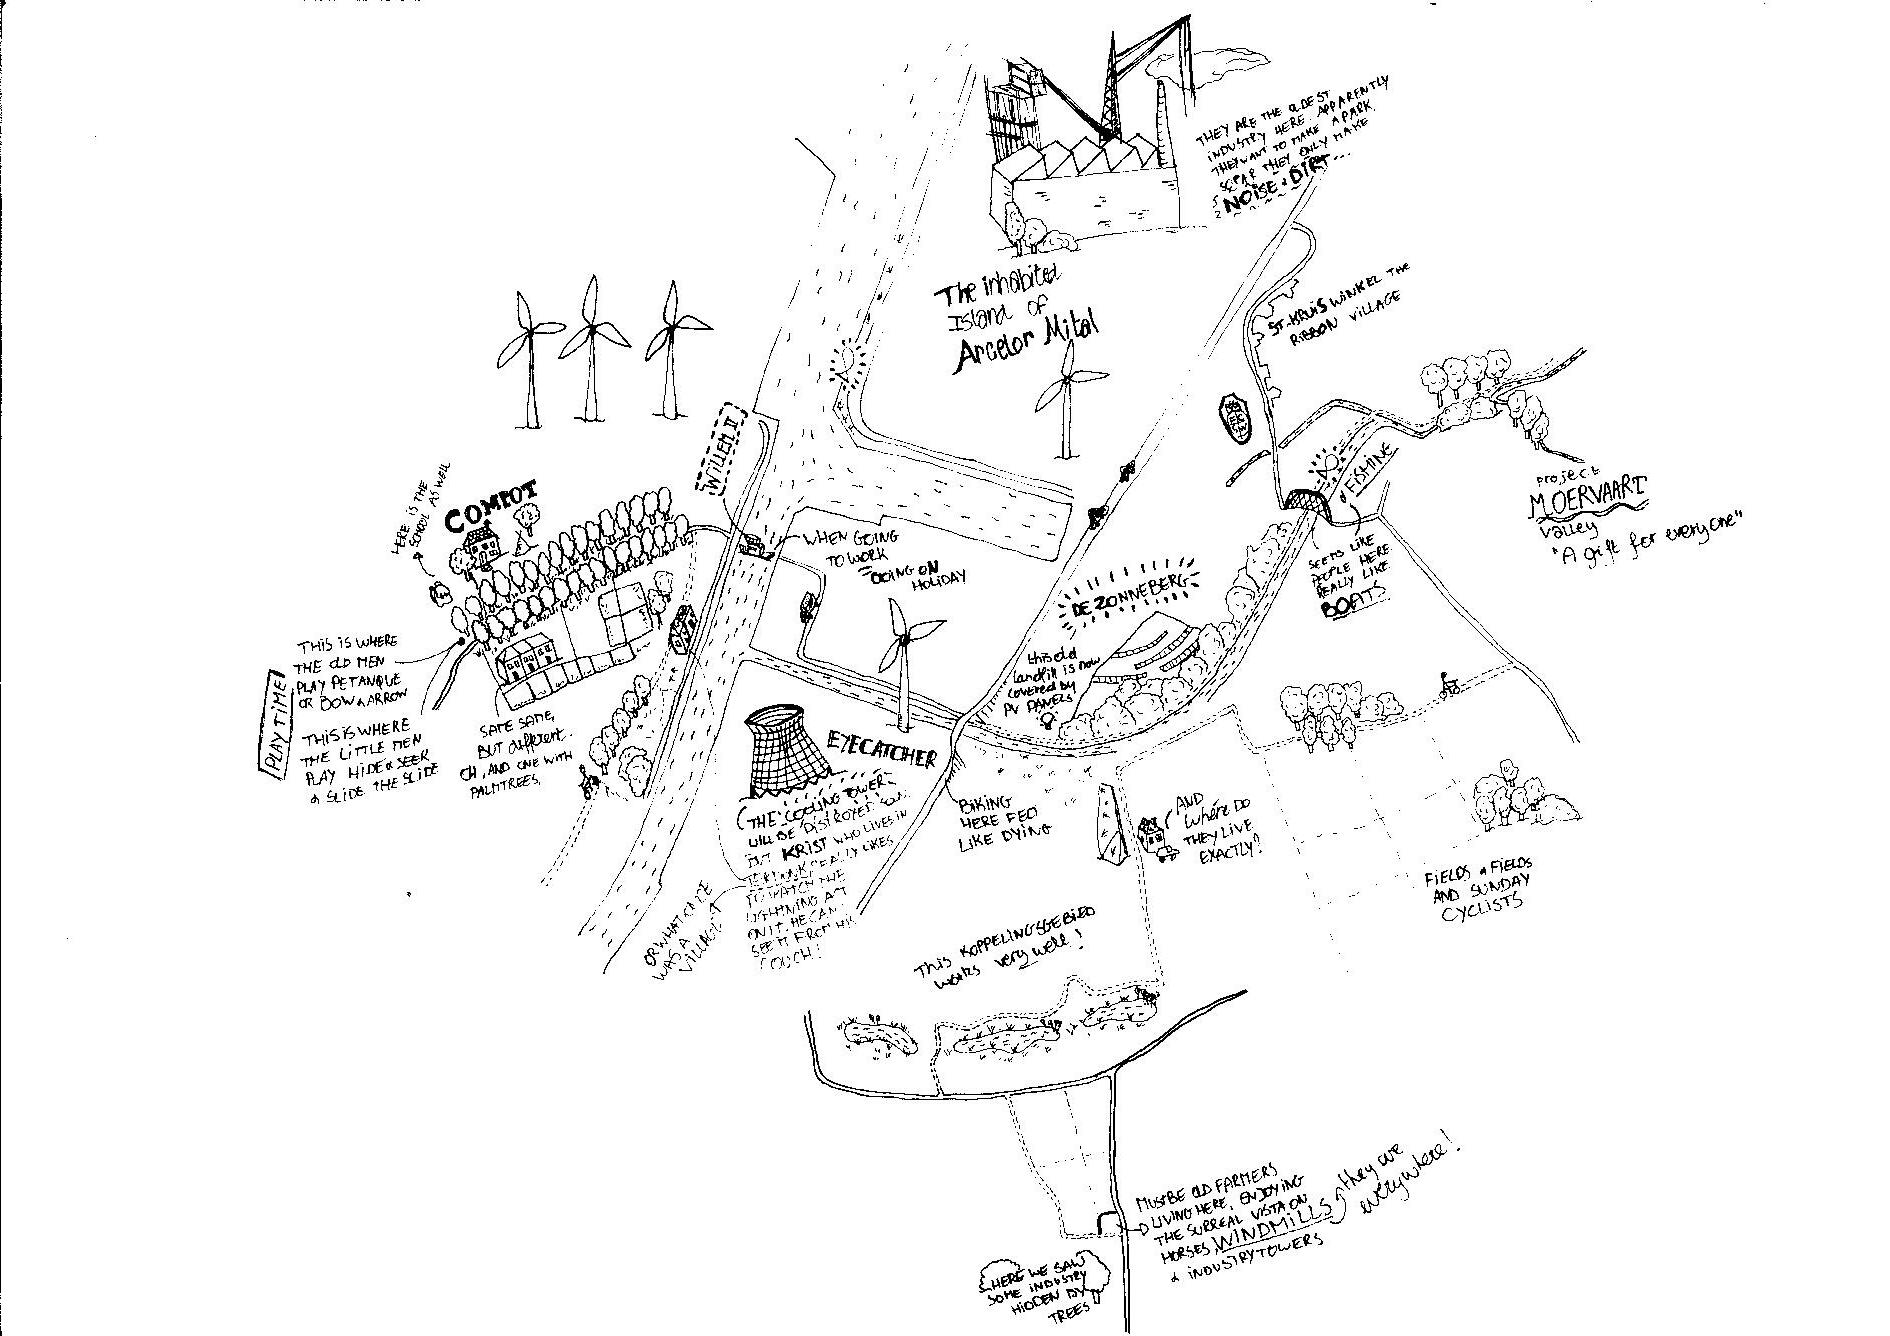 THEY ARE THE OLDEST
INDUSTRY HERE. APPARENTLY
THEY WANT TO MAKE A PARK.
SOFAR THEY ONLY MAKE
NOISE & DIRT...
The inhabited
Island of
Arcelor Mital
ST-KRUIS WINKEL THE
RIBBON VILLAGE
project
MOERVAART
Valley
"A gift for everyone"
FISHINE
SEEMS LIKE
PEOPLE HERE
REALLY LIKE
BOATS.
WILLEM II
WHEN GOING
TO WORK
= GOING ON
HOLIDAY
HERE IS THE
SCHOOL AS WELL
COMPOT
PLAYTIME
THIS IS WHERE
THE OLD MEN
PLAY PETANQUE
OR BOW & ARROW
THIS IS WHERE
THE LITTLE MEN
PLAY HIDE & SEEK
& SLIDE THE SLIDE
SAME SAME,
BUT different.
OH, AND ONE WITH
PALMTREES.
DE ZONNEBERG
this old
landfill is now
covered by
PV PANELS
EYECATCHER
(THE COOLING TOWER
WILL BE DISTROYED
BUT KRIST WHO LIVES IN
REALLY LIKES
TO WATCH THE
LIGHTNING ART
ON IT. HE CAN
SEE IT FROM HIS
COUCH!
OR WHAT ONCE
WAS A
VILLAGE?
BIKING
HERE FEELS
LIKE DYING
AND
WHERE DO
THEY LIVE
EXACTLY?
FIELDS & FIELDS
AND SUNDAY
CYCLISTS
This KOPPELINGSGEBIED
works very well!
MUST BE OLD FARMERS
LIVING HERE, ENJOYING
THE SURREAL VISTA ON
HORSES, WINDMILLS
& INDUSTRYTOWERS
they are
everywhere!
HERE WE SAW
SOME INDUSTRY
HIDDEN BY
TREES